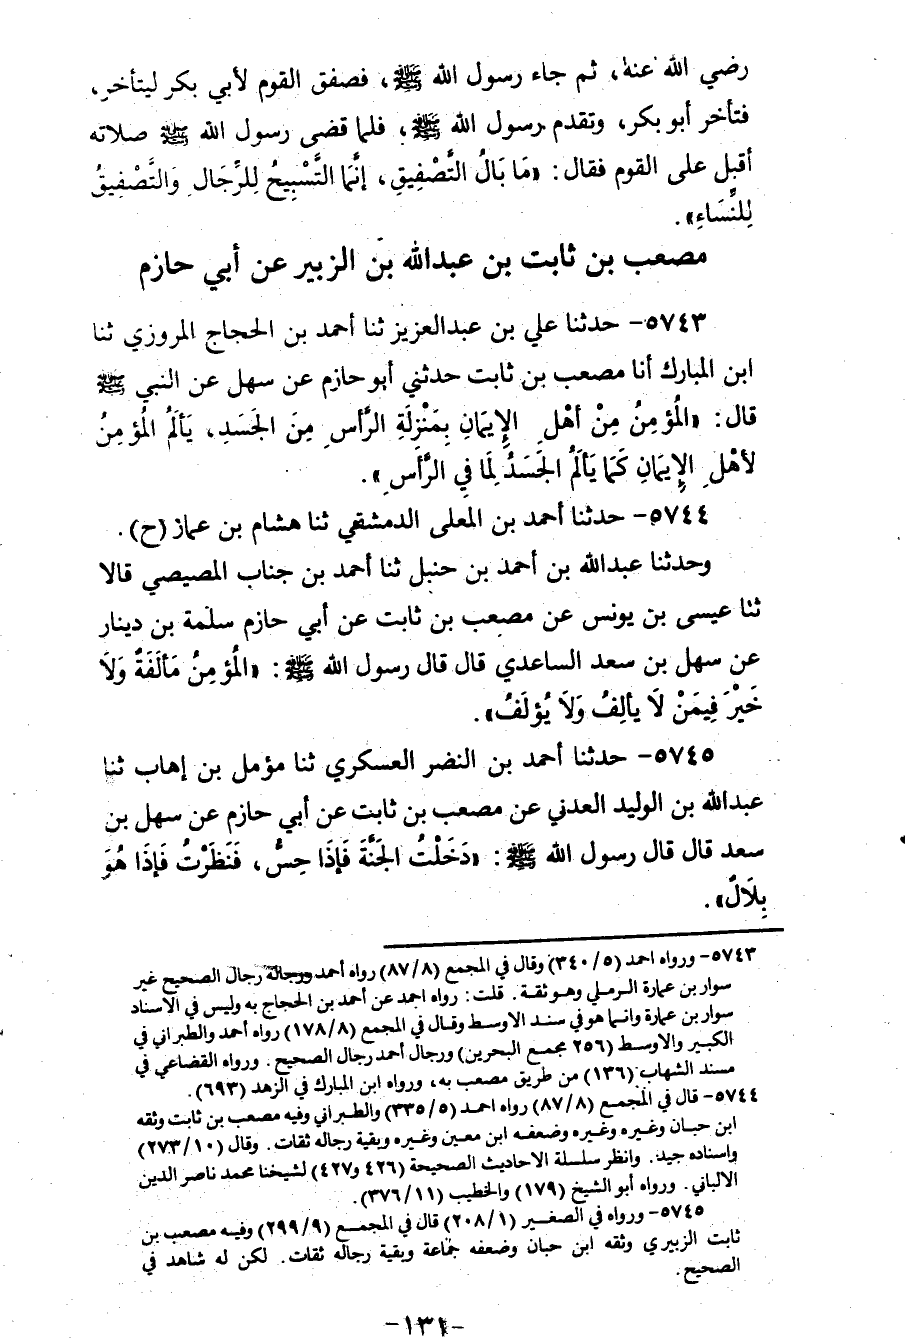 رضي الله عنه، ثم جاء رسول الله ﷺ، فصفق القوم لأبي بكر ليتأخر،
فتأخر أبو بكر، وتقدم رسول الله ﷺ، فلما قضى رسول الله ﷺ صلاته
أقبل على القوم فقال: «مَا بَالُ التَّصْفِيقِ، إنَّمَا التَّسْبِيحُ لِلرِّجَالِ وَالتَّصْفِيقُ
لِلنِّسَاءِ».
مصعب بن ثابت بن عبدالله بن الزبير عن أبي حازم
٥٧٤٣- حدثنا علي بن عبدالعزيز ثنا أحمد بن الحجاج المروزي ثنا
ابن المبارك أنا مصعب بن ثابت حدثني أبو حازم عن سهل عن النبي ﷺ
قال: «المُؤمِنُ مِنْ أهْلِ الإِيمَانِ بِمَنْزِلَةِ الرَّأسِ مِنَ الجَسَدِ، يَألَمُ المُؤمِنُ
لأهْلِ الإِيمَانِ كَمَا يَألَمُ الجَسَدُ لِمَا فِي الرَّأسِ».
٥٧٤٤- حدثنا أحمد بن المعلى الدمشقي ثنا هشام بن عمار (ح).
وحدثنا عبدالله بن أحمد بن حنبل ثنا أحمد بن جناب المصيصي قالا
ثنا عيسى بن يونس عن مصعب بن ثابت عن أبي حازم سلمة بن دينار
عن سهل بن سعد الساعدي قال قال رسول الله ﷺ: «المُؤمِنُ مَألَفَةٌ وَلاَ
خَيْرَ فِيمَنْ لاَ يألِفُ وَلاَ يُؤلَفُ».
٥٧٤٥- حدثنا أحمد بن النضر العسكري ثنا مؤمل بن إهاب ثنا
عبدالله بن الوليد العدني عن مصعب بن ثابت عن أبي حازم عن سهل بن
سعد قال قال رسول الله ﷺ: «دَخَلْتُ الجَنَّةَ فَإذَا حِسٌّ، فَنَظَرْتُ فَإذَا هُوَ
بِلَالٌ».
٥٧٤٣- ورواه احمد (٣٤٠/٥) وقال في المجمع (٨٧/٨) رواه أحمد ورجاله رجال الصحيح غير
سوار بن عمارة الرملي وهو ثقة. قلت: رواه احمد عن أحمد بن الحجاج به وليس في الاسناد
سوار بن عمارة وانما هو في سند الاوسط وقال في المجمع (١٧٨/٨) رواه أحمد والطبراني في
الكبير والاوسط (٢٥٦ مجمع البحرين) ورجال أحمد رجال الصحيح. ورواه القضاعي في
مسند الشهاب (١٣٦) من طريق مصعب به، ورواه ابن المبارك في الزهد (٦٩٣).
٥٧٤٤- قال في المجمع (٨٧/٨) رواه احمد (٣٣٥/٥) والطبراني وفيه مصعب بن ثابت وثقه
ابن حبان وغيره وغيره وضعفه ابن معين وغيره وبقية رجاله ثقات. وقال (٢٧٣/١٠)
واسناده جيد. وانظر سلسلة الاحاديث الصحيحة (٤٢٦ و٤٢٧) لشيخنا محمد ناصر الدين
الالباني. ورواه أبو الشيخ (١٧٩) والخطيب (٣٧٦/١١).
٥٧٤٥- ورواه في الصغير (٢٠٨/١) قال في المجمع (٢٩٩/٩) وفيه مصعب بن
ثابت الزبيري وثقه ابن حبان وضعفه جماعة وبقية رجاله ثقات. لكن له شاهد في
الصحيح.
-١٣١-